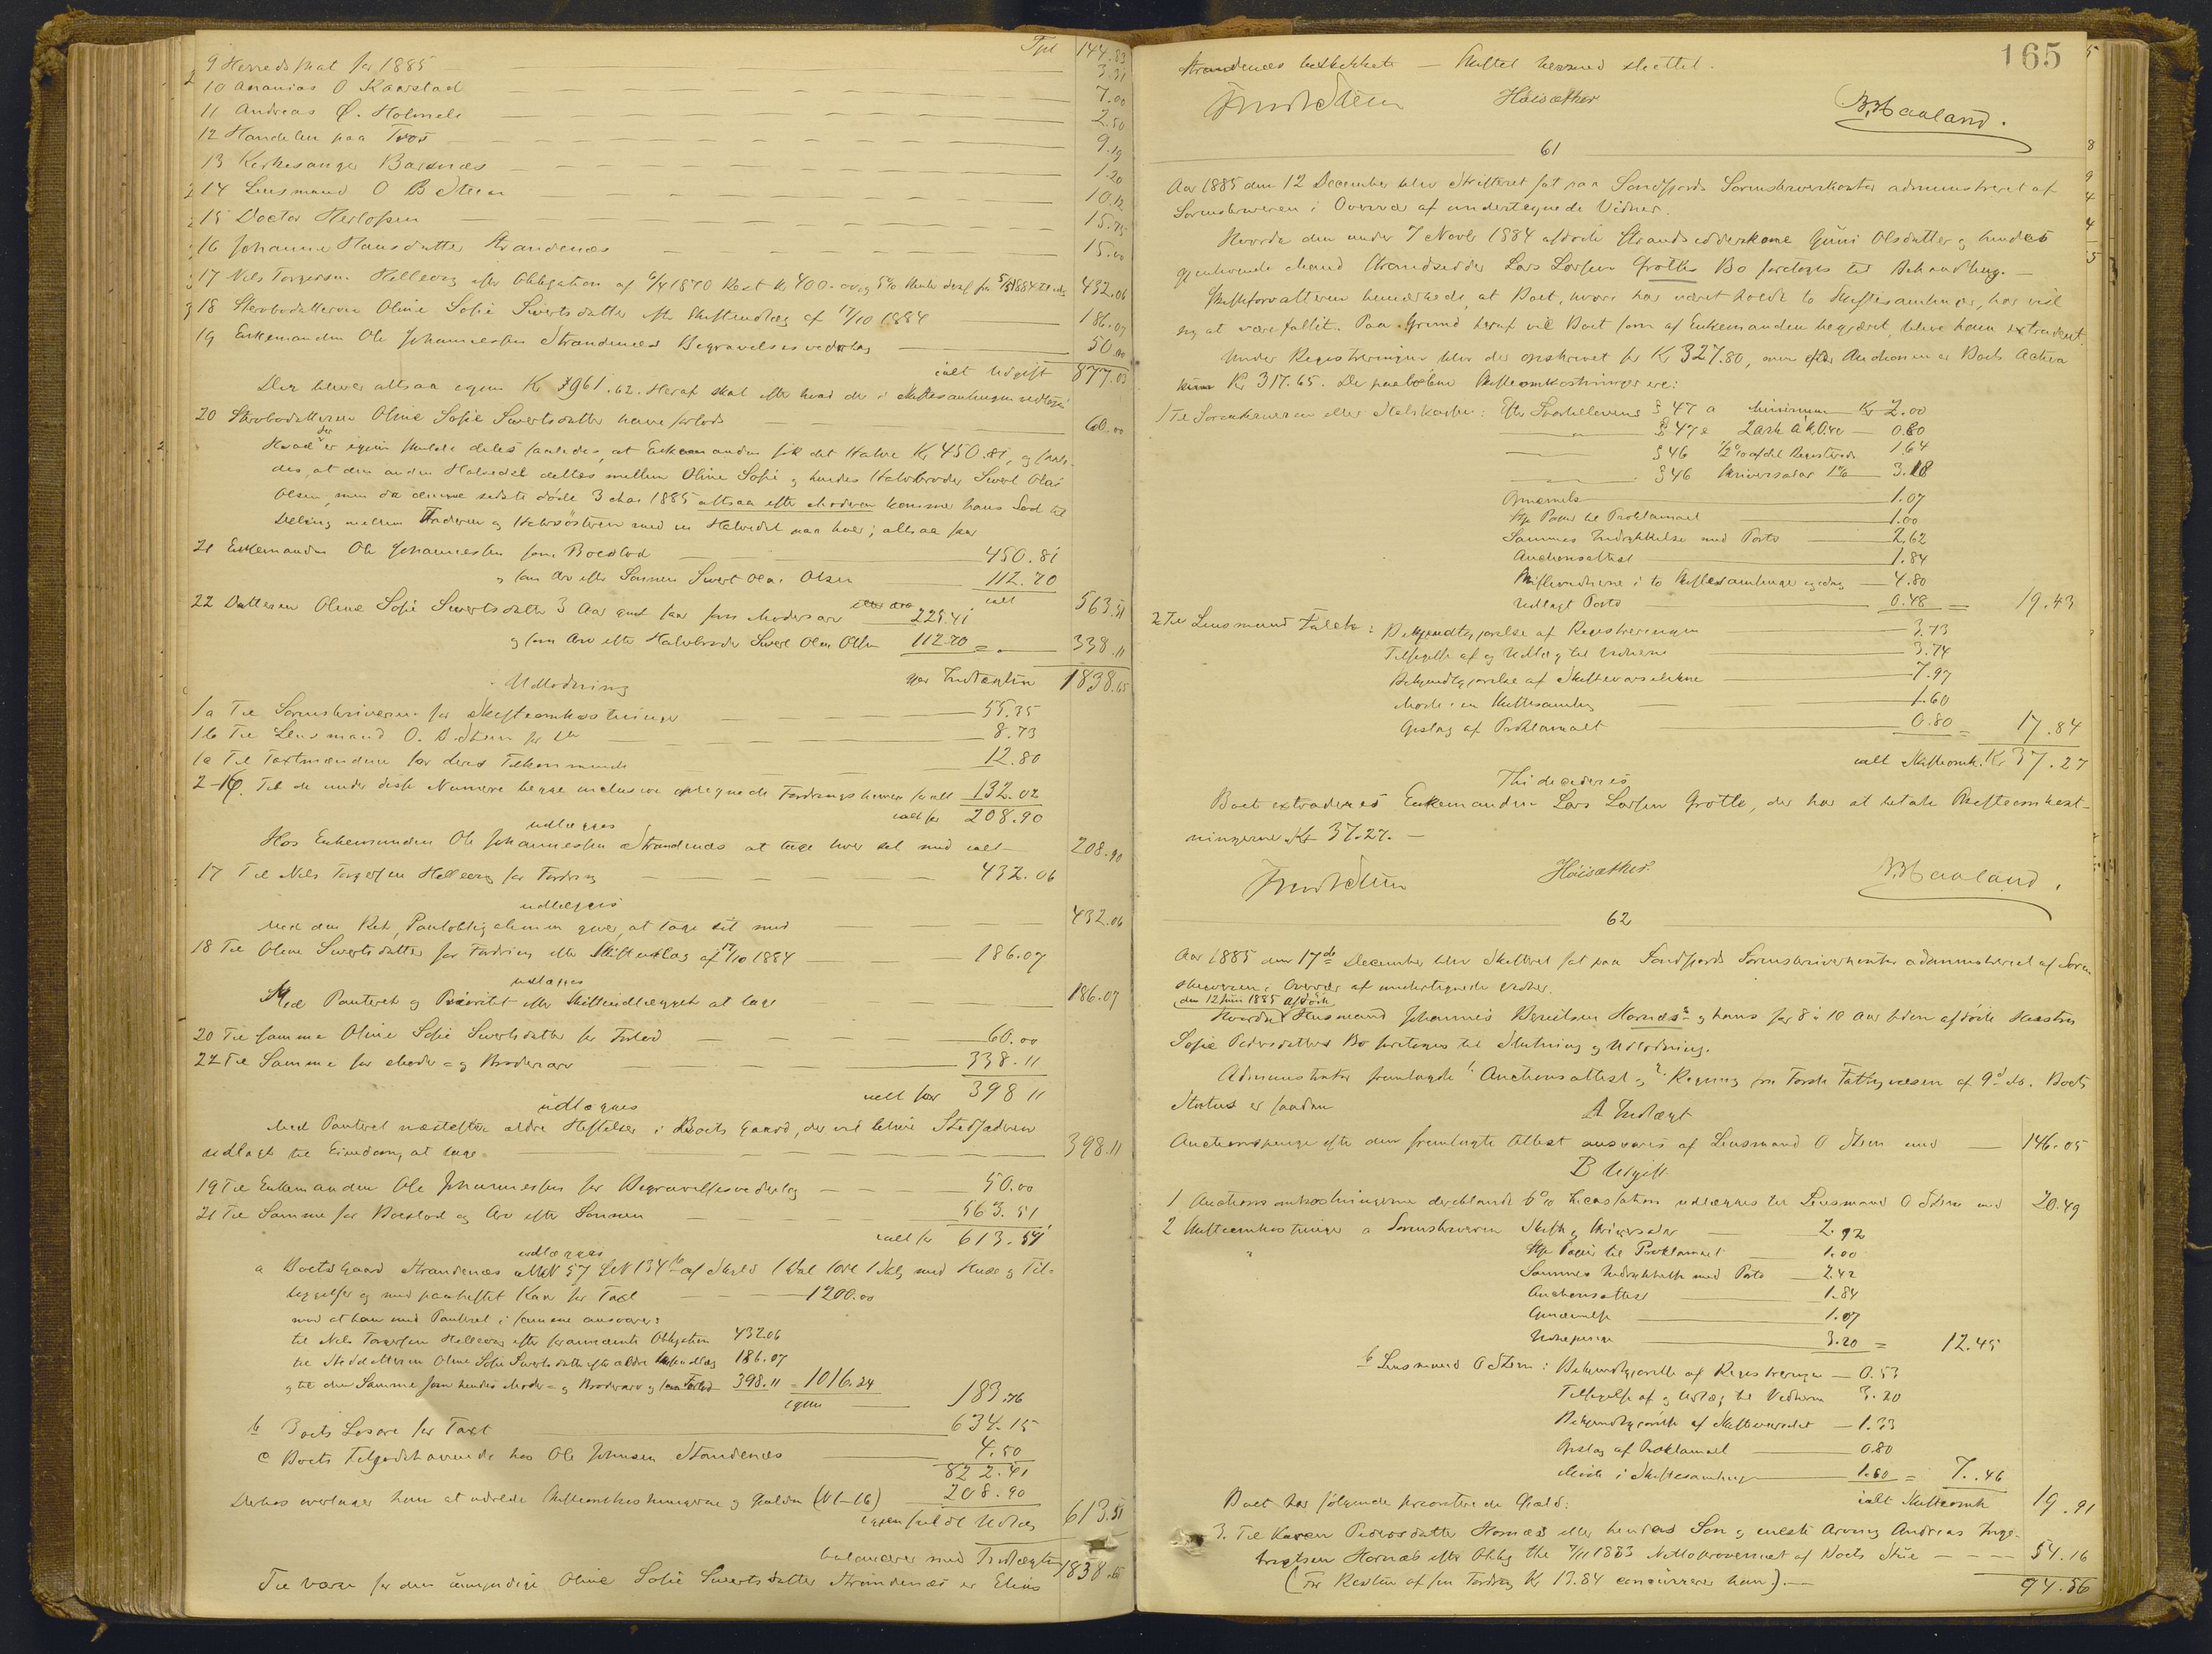 Tpt 144.83
9 Herredsskat for 1885 3.31
10 Ananias O Kaarstad 7.00
11 Andreas Ø. Holmels 2.50
12 Handelen paa 9.19
13 Kirkesanger Barsnæs 1.20
14 Lensmand O B Steen 10.12
15 Doctor Herlofsen 15.75
16 Johanne Hansdatter Strandenæs 15.00
17 Nils Torgersen Hellevog efter Obligation af 1870 Rest Kr 400.00 og 5% Renter deraf fra 1884 432.06
18 Stevbodatteren Oline Sofie Sivertsdatter efter Skifteudlæg af 17/10 1884 186.07
19 Enkemanden Ole Johannessen Strandenæs Begravelsesvederlag 50.00
ialt Udgift 877.03
Der bliver altsaa igjen Kr 961.62. Heraf skal efter hvad der i Skiftesamlingen vedtoges
20 Stevbodatteren Oline Sofie Sivertsdatter have forlods 60.00
Hvad der er igjen skulde deles saaledes, at Enkemanden fik det Halve Kr 450.81, og saale-
des, at den anden Halvedel deltes mellem Oline Sofie og hendes Halvbroder Sivert Olai
Olsen, men da denne sidste døde 3 Mar 1885 altsaa efter Moderen kommer hans Lod til
Deling mellem Faderen og Halvsøsteren med en Halvedel paa hver; altsaa faar
21 Enkemanden Ole Johannessen som Boeslod 450.81
og som Arv efter Sønnen Sivert Olai Olsen 112.70
ialt 563.51
22 Datteren Oline Sofie Sivertsdatter 3 Aar gml faar som Modersarv 225.41
og som Arv efter Halvbroder Sivert Olai Olsen 112.70 = 338.11
Indtægten 1838.65
Udlodning
1a Til Sorenskriveren for Skifteomkostninger 55.35
1b Til Lensmand O. B. Steen for do 8.73
1c Til Taxtmændene for deres Tilkommende 12.80
2-16. Til de under disse Numere begge inclusive opregnede Fordringshavere ialt 132.02
ialt for 208.90
udlægges
Hos Enkemanden Ole Johannessen Strandenæs at tage hver sit med ialt 208.90
17 Til Nils Torgersen Hellevog for Fordring 432.06
udlægges
Med den Ret, Pantobligationen giver, at tage sit med 432.06
18 Til Oline Sivertsdatter for Fordring efter Skifteudlæg af 17/10 1884 186.07
udlægges
Med Panteret og Prioritet efter Skifteudlægget at tage 186.07
20 Til samme Oline Sofie Sivertsdatter for Forlod 60.00
22 Til Samme for Moder- og Broderarv 338.11
ialt for 398 11
udlægges
Med Panteret næstefter ældre Heftelser i Boets Gaard, der vil blive Stedfaderen
udlagt til Eiendom, at tage 398.11
19 Til Enkemanden Ole Johannessen for Begravelsesvederlag 50.00
21 Til Samme for Boeslod og Arv efter Sønnen 563.51
ialt for 613.51
udlægges
a Boets Gaard Strandenæs MN 57 LN 134b af Skyld 1 Dal 1 Ort 1 Skl, med Huse og Til-
liggelser og med paaheftet Kaar for Taxt 1200.00
mod at han med Panteret i samme ansvarer:
til Nils Torgersen Hellevog efter forannævnte Obligation 432.06
til Steddatteren Oline Sofie Sivertsdatter efter ældre Skifteudlæg 186.07
og til den Samme som hendes Moder- og Broderarv og Forlod 398.11 = 1016.24
igjen 183.76
b Boets Løsøre for Taxt 634.15
c Boets Tilgodehavende hos Ole Johnsen Strandenæs 4.50
822.41
Derhos overtager han at udrede Skifteomkostningerne og Gjælden (N 1-16) 208.90
igjen fuldt Udlæg 613.51
balancerer med Indtægten 1838.65
Til Værge for den umyndige Oline Sofie Sivertsdatter Strandenæs er Elias
165
Strandenæs beskikket — Skiftet hermed sluttet.
Fredr Steen Høisæther B. Haaland.
61
Aar 1885 den 12 December blev Skifteret sat paa Søndfjords Sorenskriverkontor administreret af
Sorenskriveren i Overvær af undertegnede Vidner.
Hvorda den under 7 Novbr 1884 afdøde Strandsidderkone Guri Olsdatter og hendes
gjenlevende Mand Strandsidder Lars Larsen Grotles Bo foretoges til Behandling.—
Skifteforvalteren bemærkede, at Boet, hvori har været holdt to Skiftesamlinger, har vist
sig at være fallit. Paa Grund heraf vil Boet som af Enkemanden begjæret, blive ham extraderet.
Under Registreringen blev der opskrevet for Kr 327.80, men efter Auctionen er Boets Activa
kun Kr 317.65. De paaløbne Skifteomkostninger ere:
1 Til Sorenskriveren eller Statskassen: Efter Sportellovens § 47 a Minimum Kr 2.00
§ 47 e 2 Ark à 40 Øre 0.80
§ 46 ½% af det Registrerede 1.64
§ 46 Universalar 1% 3.18
Opnævnelse 1.07
Stp Papir til Proklamaet 1.00
Sammes Indrykkelse med Porto 2.62
Auctionsattest 1.84
Skiftevidnerne i to Skiftesamlinger og idag 4.80
Udlagt Porto 0.48 = 19.43
2 Til Lensmand Falch: Bekjendtgjørelse af Registreringen 3.73
Tilsigelse af og Udlæg til Vidnerne 3.74
Bekjendtgjørelse af Skiftevarslerne 7.97
Møde i en Skiftesamling 1.60
Opslag af Proklamaet 0.80 = 17.84
ialt Skifteomk. Kr 37.27
Thi decideres
Boet extraderes Enkemanden Lars Larsen Grotle, der har at betale Skifteomkost-
ningerne Kr 37.27.—
Fredr Steen Høisæther B. Haaland.
62
Aar 1885 den 17de December blev Skifteret sat paa Søndfjords Sorenskriverkontor administreret af Soren
skriveren i Overvær af undertegnede Vidner.
den 12 Juni 1885 afdøde
Hvorda Husmand Johannes Hornæs og hans for 8 à 10 Aar siden afdøde Hustru
Sofie Pedersdatters Bo foretoges til Slutning og Udlodning.
Administrator fremlagde 1 Auctionsattest og 2 Regning fra Førde Fattigvæsen af 9d ds. Boets
Status er saadan
A Indtægt
Auctionspenge efter den fremlagte Attest ansvares af Lensmand O Steen med 146.05
B Udgift
1 Auctionsomkostningerne deriblandt 6% Incassation udlægges til Lensmand O Steen med 20.49
2 Skifteomkostninger a Sorenskriveren Skifte og Universalar 2.92
Stp Papir til Proklamaet 1.00
Sammes Indrykkelse med Porto 2.42
Auctionsattest 1.84
Opnævnelse 1.07
Vidnepenge 3.20 = 12.45
b Lensmand O Steen: Bekjendtgjørelse af Registreringen 0.53
Tilsigelse af og Udlæg til Vidnerne 3.20
Bekjendtgjørelse af Skiftevarselet 1.33
Opslag af Proklamaet 0.80
Møde i Skiftesamling 1.60 = 7.46
ialt Skifteomk 19.91
Boet har følgende prioriterede Gjæld:
3. Til Karen Pedersdatter Hornæs eller hendes Søn og eneste Arving Andreas Inge-
brigtsen Hornæs efter Oblig thl 1883 Nettoprovenuet af Boets Stue 54.16
(For Resten af sin Fordring Kr 13.84 concurrerer han).— 94.56